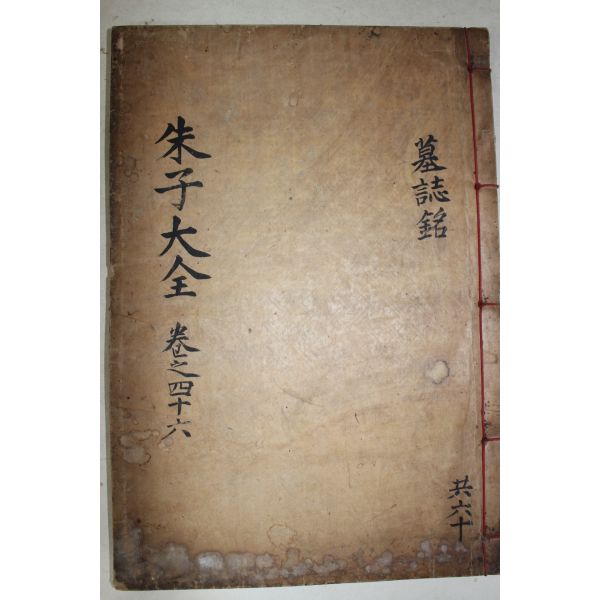 墓誌銘
共六十
朱子大全 卷之四十六